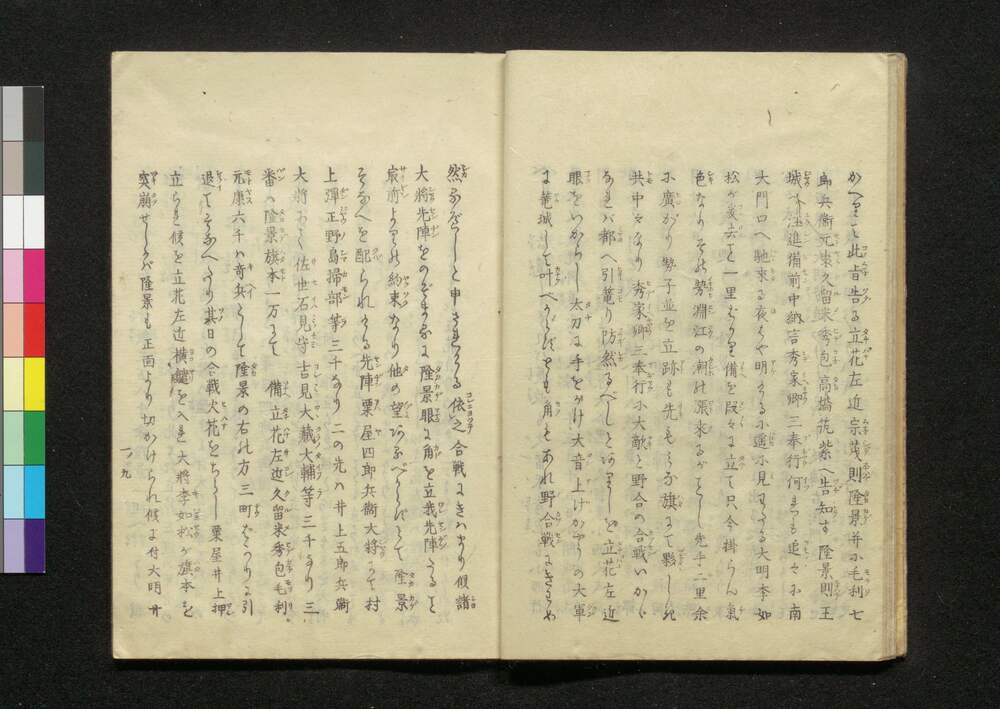 かへりと此旨告る立花左近宗茂則隆景并小毛利七
郎兵衛元康久留米秀包高橋筑紫へ告知す隆景則王
城へ注進備前中納言秀家卿三奉行何まても追々に南
大門口へ馳来る夜はや明ける小遥に見わたる大明李如
松が災去と一里ばかり備を段々に立て只今掛らん気
色なりその勢潮江の潮の張来るがごとし先手二里余
に廣がり勢子並を立跡も先もみな旗にて夥しれ
共中々なり秀家卿三奉行小大敵と野合の合戦いかゝ
あれバ都へ引篭り防然るべしとありしを立花左近
眼をいからし太刀に手をかけ大音上けかゝりの大軍
に篭城して叶べからずとも角もあれ野合戦にきわめ
然るべしと申されける依之合戦にきはまり候諸
大将先陣をのぞまるに隆景眼に角を立我先陣たると
最前よりの約束なり他の望あるべからずとて隆景
そなへを配られける先陣粟屋四郎兵衛大将にて村
上弾正野島掃部等三千なり二の先ハ井上五郎兵衛
大将にて佐世石見守吉見大蔵大輔等三千なり三
番ハ隆景旗本一万にて　備立花左近久留米秀包毛利
元康六千ハ奇兵として隆景の右の方三町ばかりに引
退てそなへたり其日の合戦火花をちらし粟屋井上押
立られ候を立花左近横鑓を入れ大将李如松が旗本を
突崩せしかバ隆景も正面より切かけられ候に付大明廾
一ノ九